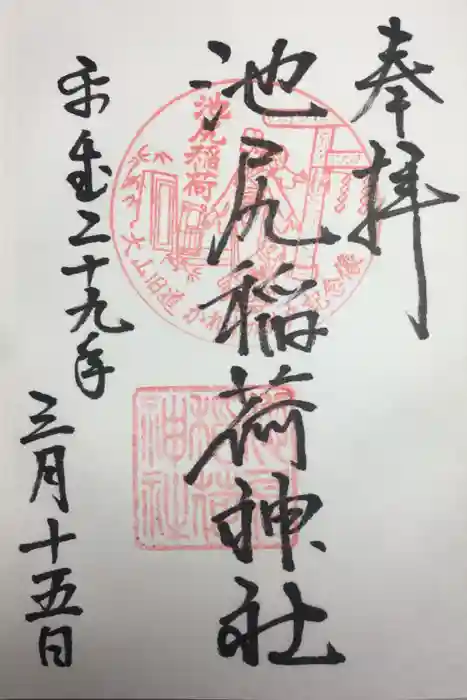 奉拝
池尻稲荷神社
平成二十九年
三月十五日
池尻稲荷
大山旧道